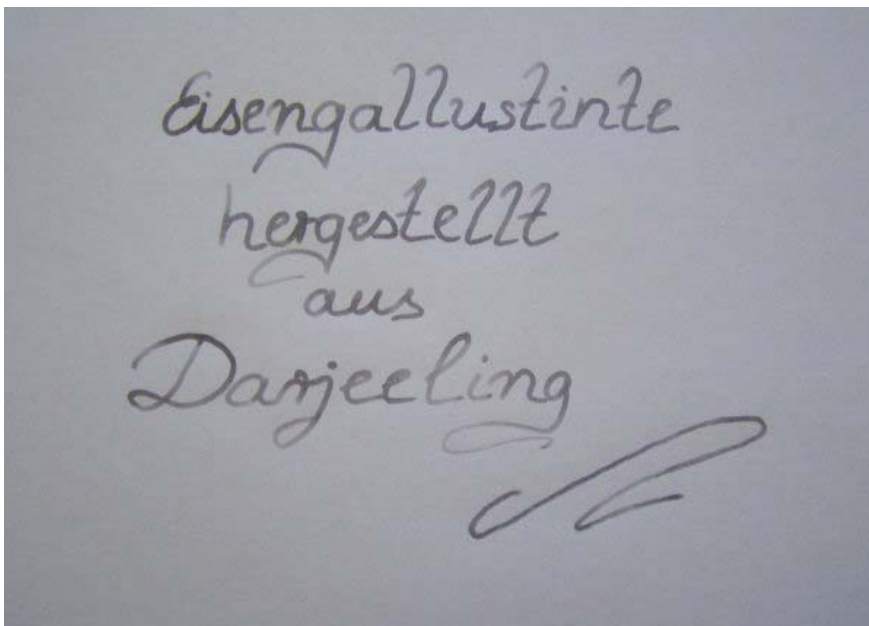 Eisengallustinte
hergestellt
aus
Darjeeling